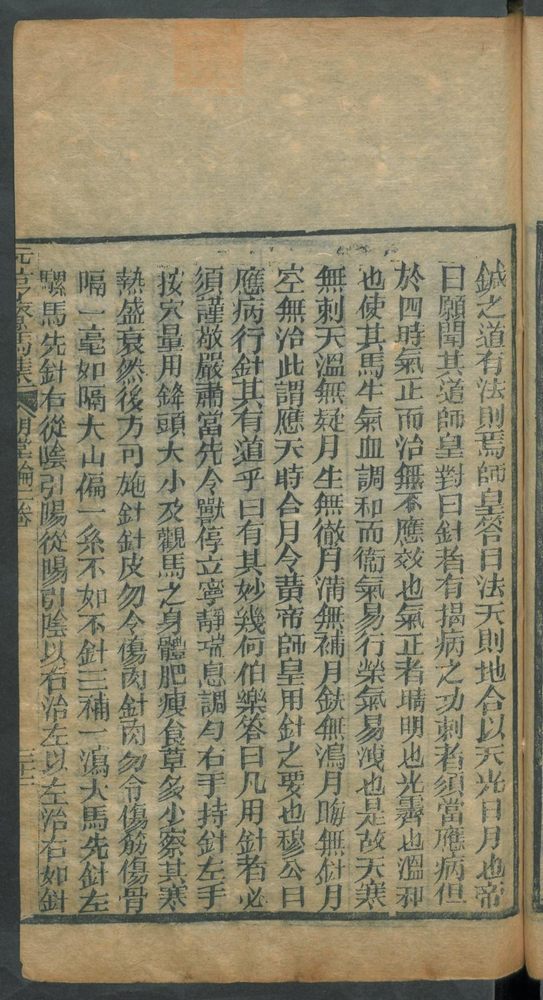 鍼之道有法則焉師皇答曰法天則地合以天光日月也帝
曰願聞其道師皇對曰針者有揭病之功刺者須當應病但
於四時氣正而治無不應效也氣正者晴明也光霽也溫和
也使其馬牛氣血調和而衞氣易行榮氣易洩也是故天寒
無刺天溫無疑月生無㵐月滿無補月缺無瀉月晦無針月
空無治此謂應天時合月令黃帝師皇用針之要也穆公曰
應病行針其有道乎曰有其妙幾何伯樂答曰凡用針者必
須謹敬嚴肅當先令獸停立寧靜喘息調勻右手持針左手
按穴量用鋒頭大小及觀馬之身體肥瘦食草多少察其寒
熱盛衰然後方可施針針皮勿令傷肉針肉勿令傷筋傷骨
隔一毫如隔大山偏一絲不如不針三補一瀉大馬先針左
騍馬先針右從陰引陽從陽引陰以右治左以左治右如針
元亨療馬集 明堂論一卷 三十二